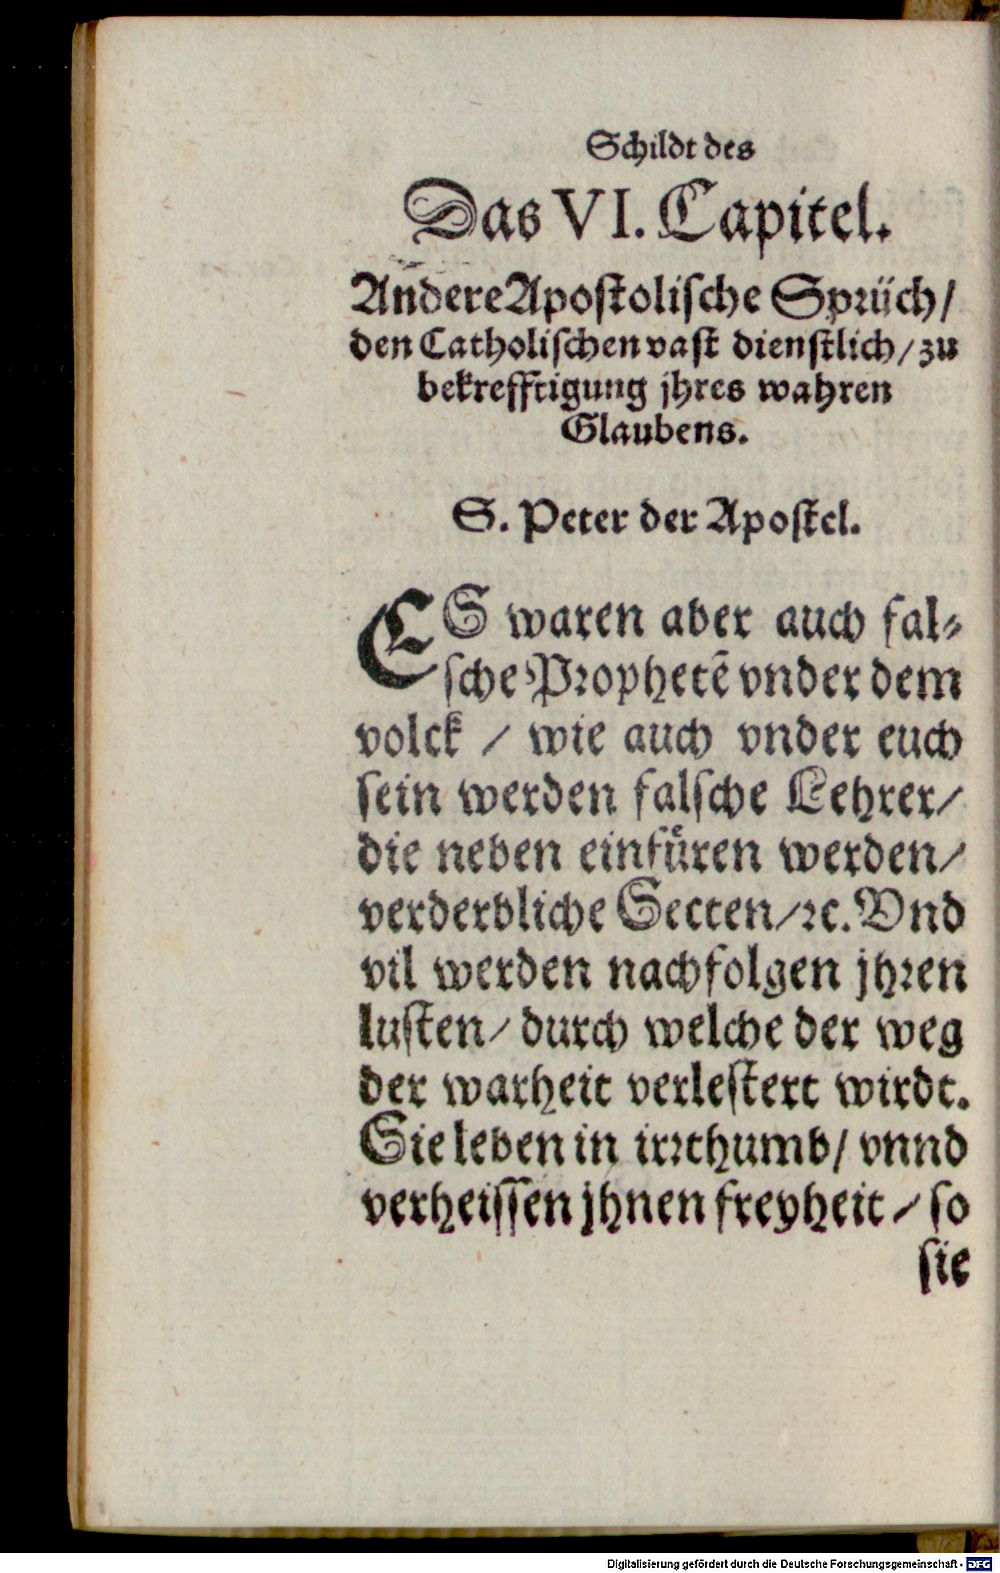 Schildt des
Das VI. Capitel.
Andere Apostolische Sprüch/
den Catholischen vast dienstlich/ zu
bekrefftigung jhres wahren
Glaubens.
S. Peter der Apostel.
ES waren aber auch fal-
sche Prophetẽ vnder dem
volck / wie auch vnder euch
sein werden falsche Lehrer/
die neben einfüren werden/
verderbliche Secten/ꝛc. Vnd
vil werden nachfolgen jhren
lusten/ durch welche der weg
der warheit verlestert wirdt.
Sie leben in irrthumb/ vnnd
verheissen jhnen freyheit/ so
sie
Digitalisierung gefördert durch die Deutsche Forschungsgemeinschaft - DFG